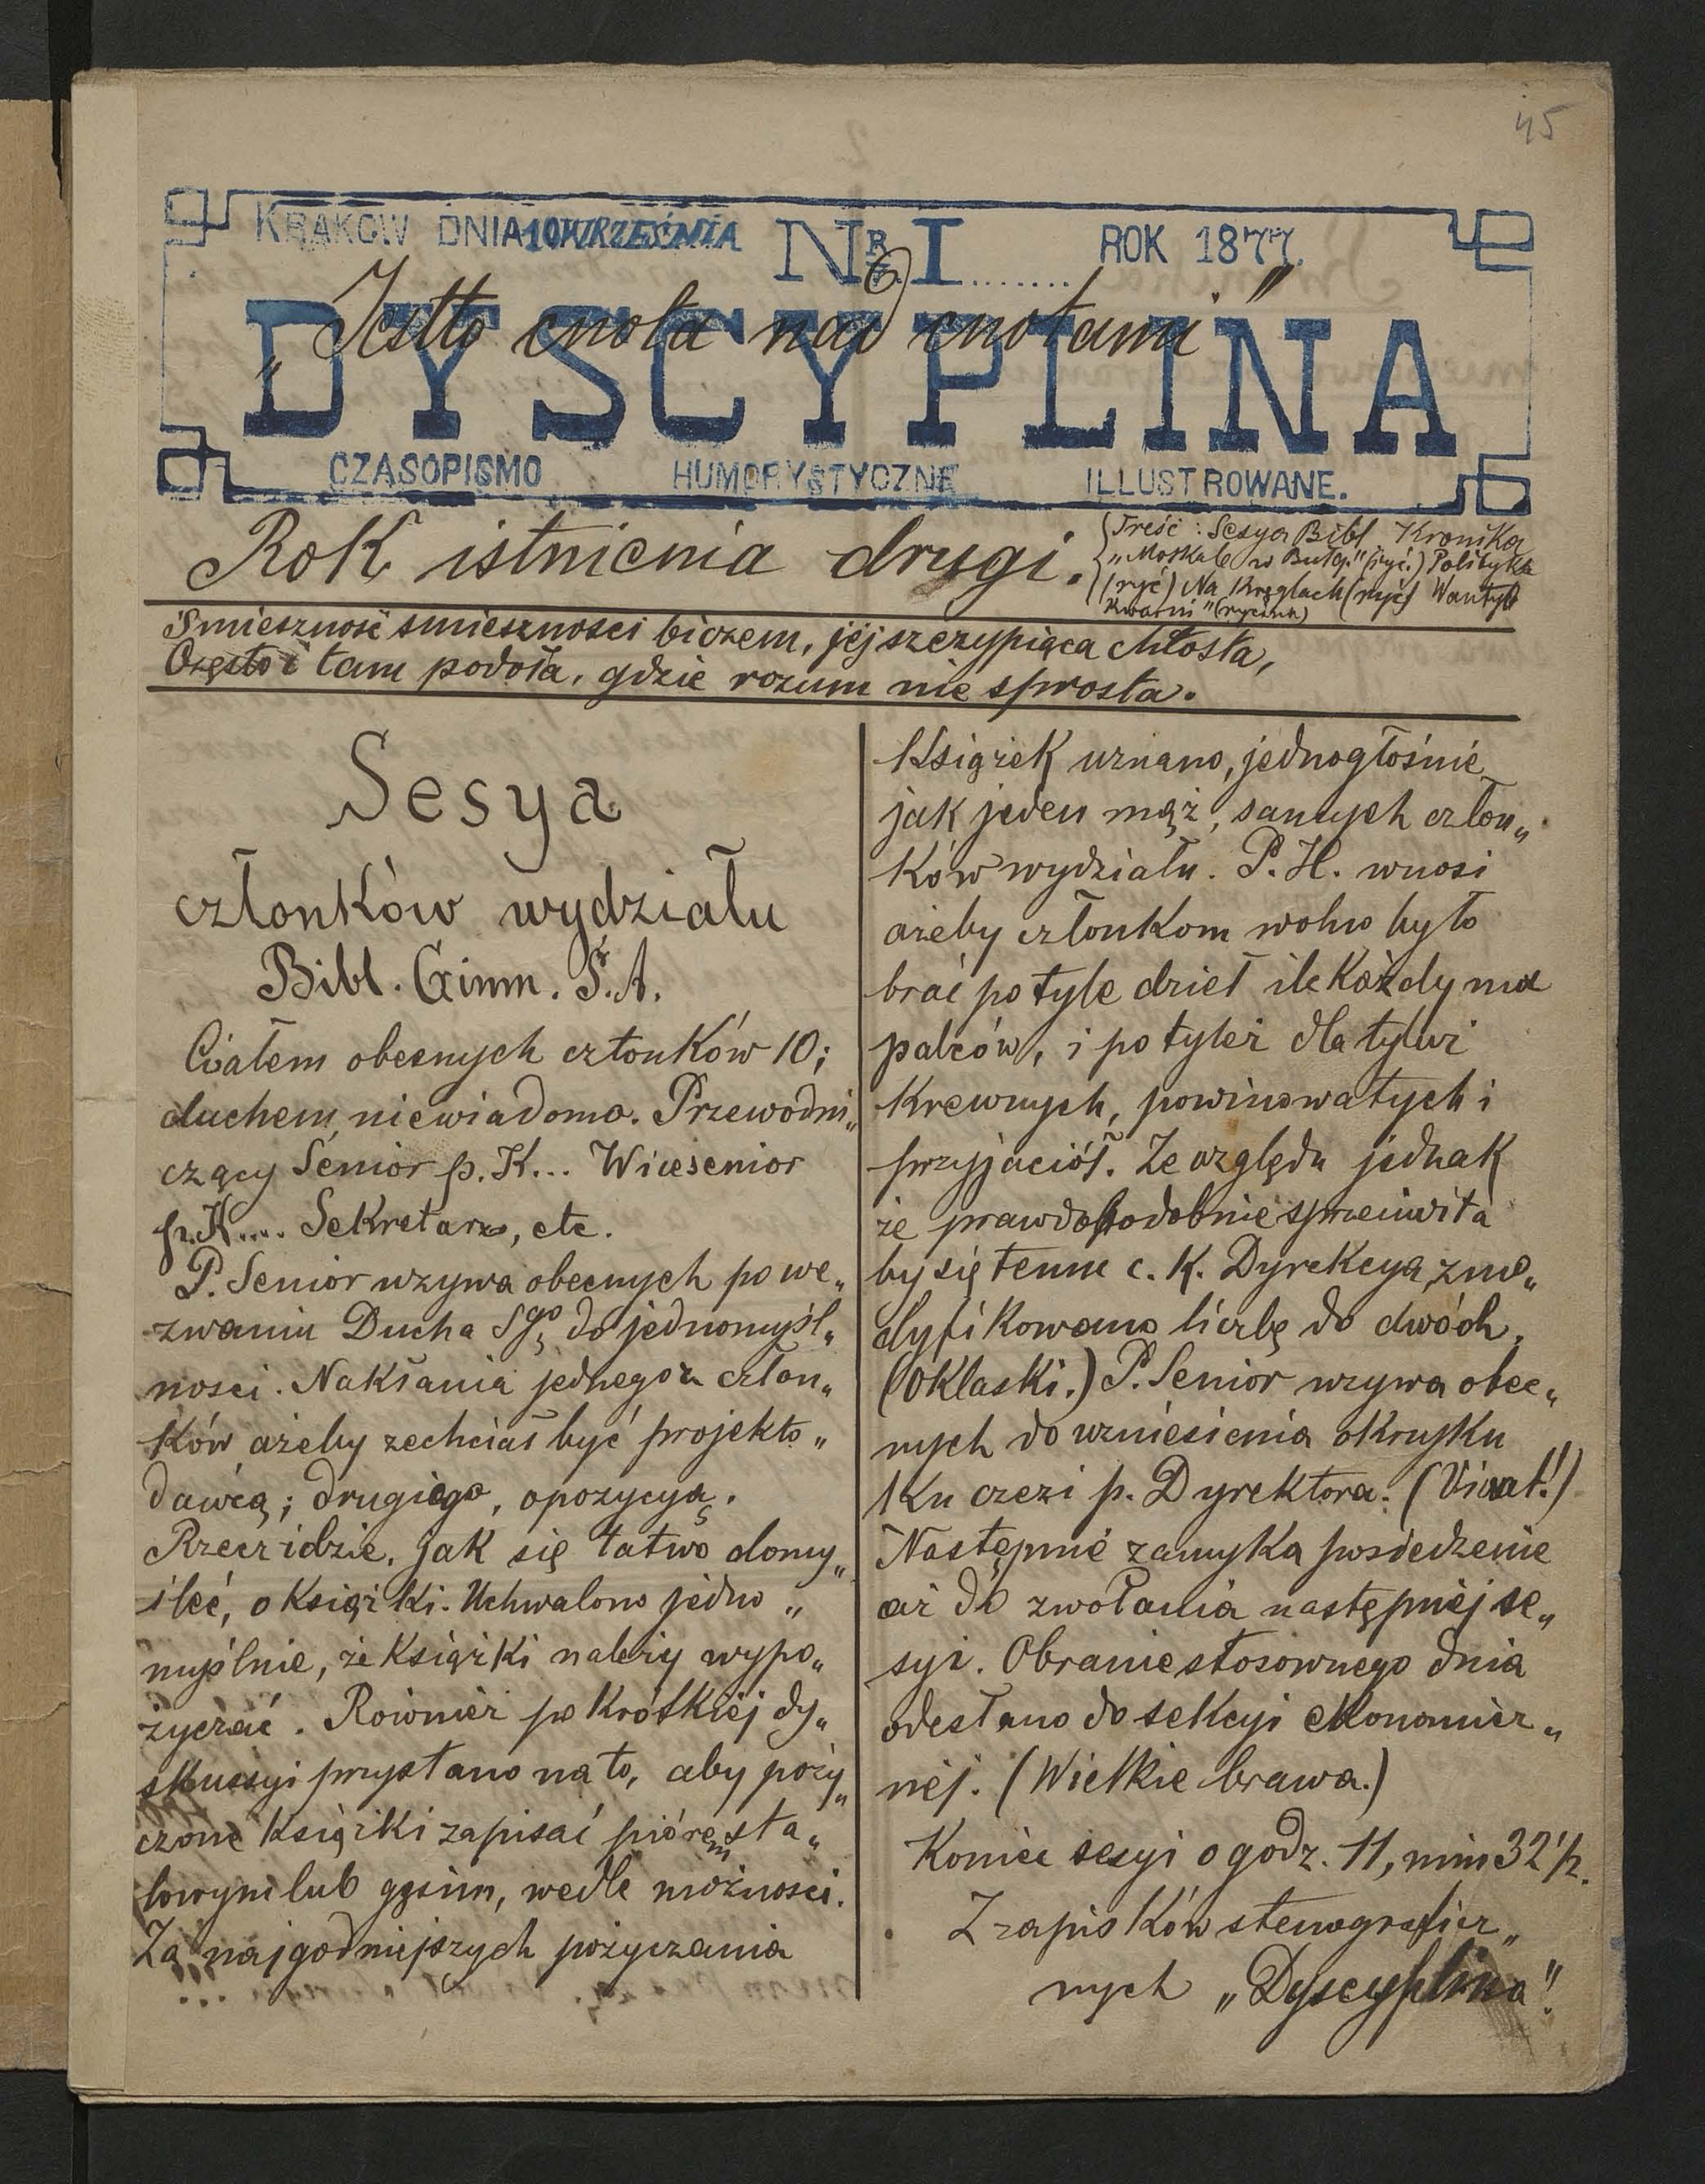 45
KRAKOW DNIA 10 WRZEŚNIA NR. I........ ROK 1877.
„Jestto cnota nad cnotami"
DYSCYPLINA
CZASOPISMO HUMORYSTYCZNE ILLUSTROWANE.
Rok istnienia drugi.
Treść: Sesya Bibl. Kronika
„Moskale w Bułg." (ryć.) Polityka
(ryć) Na Kręglach (ryć)
Śmieszność śmieszności biczem, jej szczypiąca chłosta,
Często i tam podoła, gdzie rozum nie sprosta.
Sesya
członków wydziału
Bibl. Gimn. Ś. A.
Ciałem obecnych członków 10;
duchem, niewiadomo. Przewodni„
czący Senior p. K... Wicesenior
p. K.... Sekretarz, etc.
P. Senior wzywa obecnych po we„
zwaniu Ducha Sgo do jednomyśl„
ności. Nakłania jednego z człon„
ków ażeby zechciał być projekto„
dawcą; drugiego, opozycyą.
Rzecz idzie, jak się łatwo domy„
śleć, o książki. Uchwalono jedno„
myślnie, że książki należy wypo„
życzać. Również po krótkiej dy„
skussyi przystano na to, aby poży„
czone książki zapisać piórem sta„
lowym lub gęsim, wedle możności.
Za najgodniejszych pożyczania
książek uznano, jednogłośnie
jak jeden mąż, samych człon„
ków wydziału. P. H. wnosi
ażeby członkom wolno było
brać po tyle dzieł ile każdy ma
palców, i po tyleż dla tyluż
krewnych, powinowatych i
przyjaciół. Ze względu jednak
że prawdopodobnie sprzeciwiła
by się temu c. k. Dyrekcya, zmo„
dyfikowano liczbę do dwóch.
(Oklaski.) P. Senior wzywa obec„
nych do wzniesienia okrzyku
ku czci p. Dyrektora. (Vivat!)
Następnie zamyka posiedzenie
aż do zwołania następnej se„
syi. Obranie stosownego dnia
odesłano do sekcyi ekonomicz„
nej. (Wielkie brawa.)
Koniec sesyi o godz. 11, min 32 1/2.
Z zapisków stenograficz„
nych „Dyscyplina".